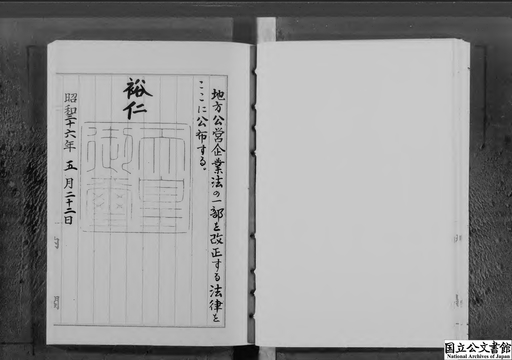 地方公営企業法の一部を改正する法律を
ここに公布する。
裕仁
天皇
御璽
昭和三十六年五月二十二日
国立公文書館
National Archives of Japan